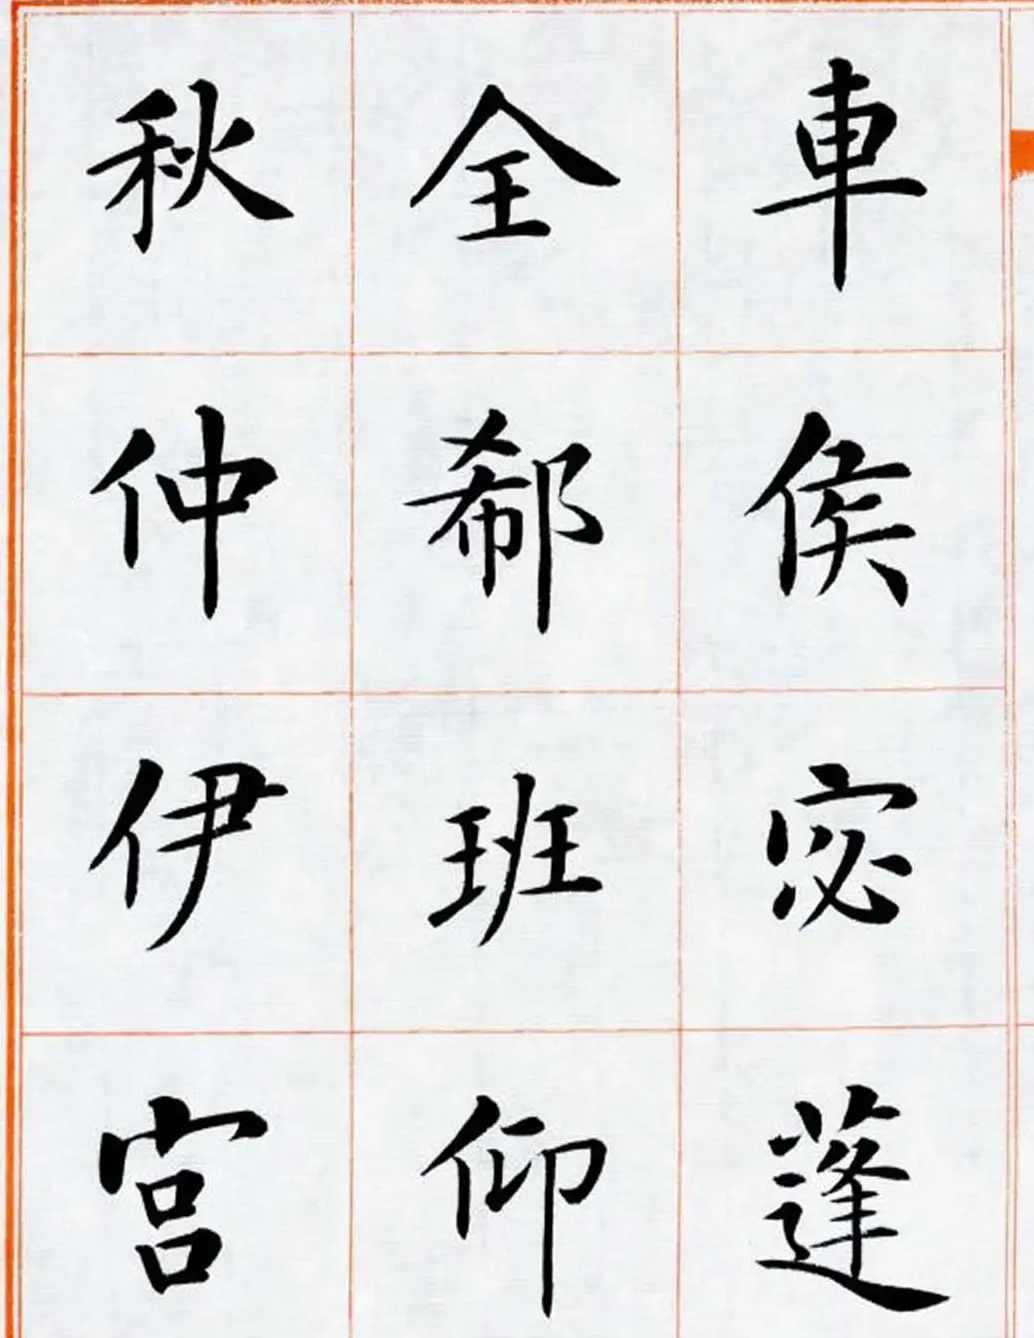 車侯宓蓬
全郗班仰
秋仲伊宮